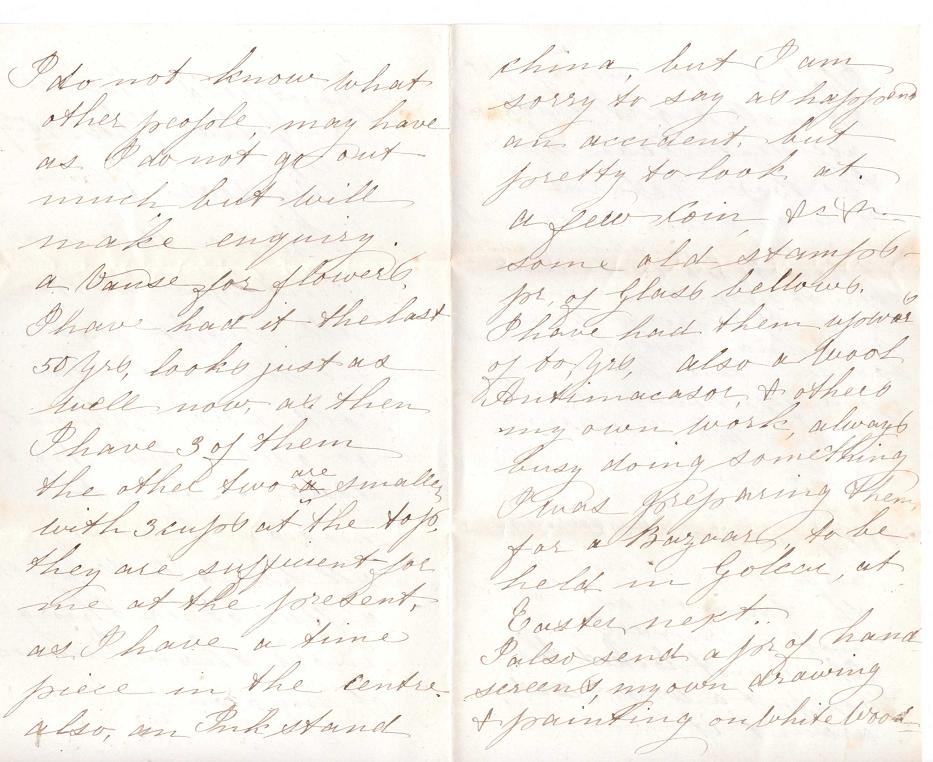 I do not know what
other people, may have
as I do not go out
much but will
make enquiry.
a Vause for flowers,
I have had it the last
50 yrs, looks just as
well now, as then
I have 3 of them
the other two are smaller
with 3 cups at the top,
they are sufficient for
me at the present,
as I have a time
piece in the centre.
also, an Ink stand
china, but I am
sorry to say as happend
an accident, but
pretty to look at.
a few Coin, &c &c
some old stamps
pr, of Glass bellows.
I have had them upwars
of 60 yrs, also a Wool
Antimacasor, & others
my own work, always
busy doing something
I was preparing them,
for a Bazaar, to be
held in Golcar, at
Easter next.
I also send a pr of hand
screens, my own drawing
& painting on White Wood